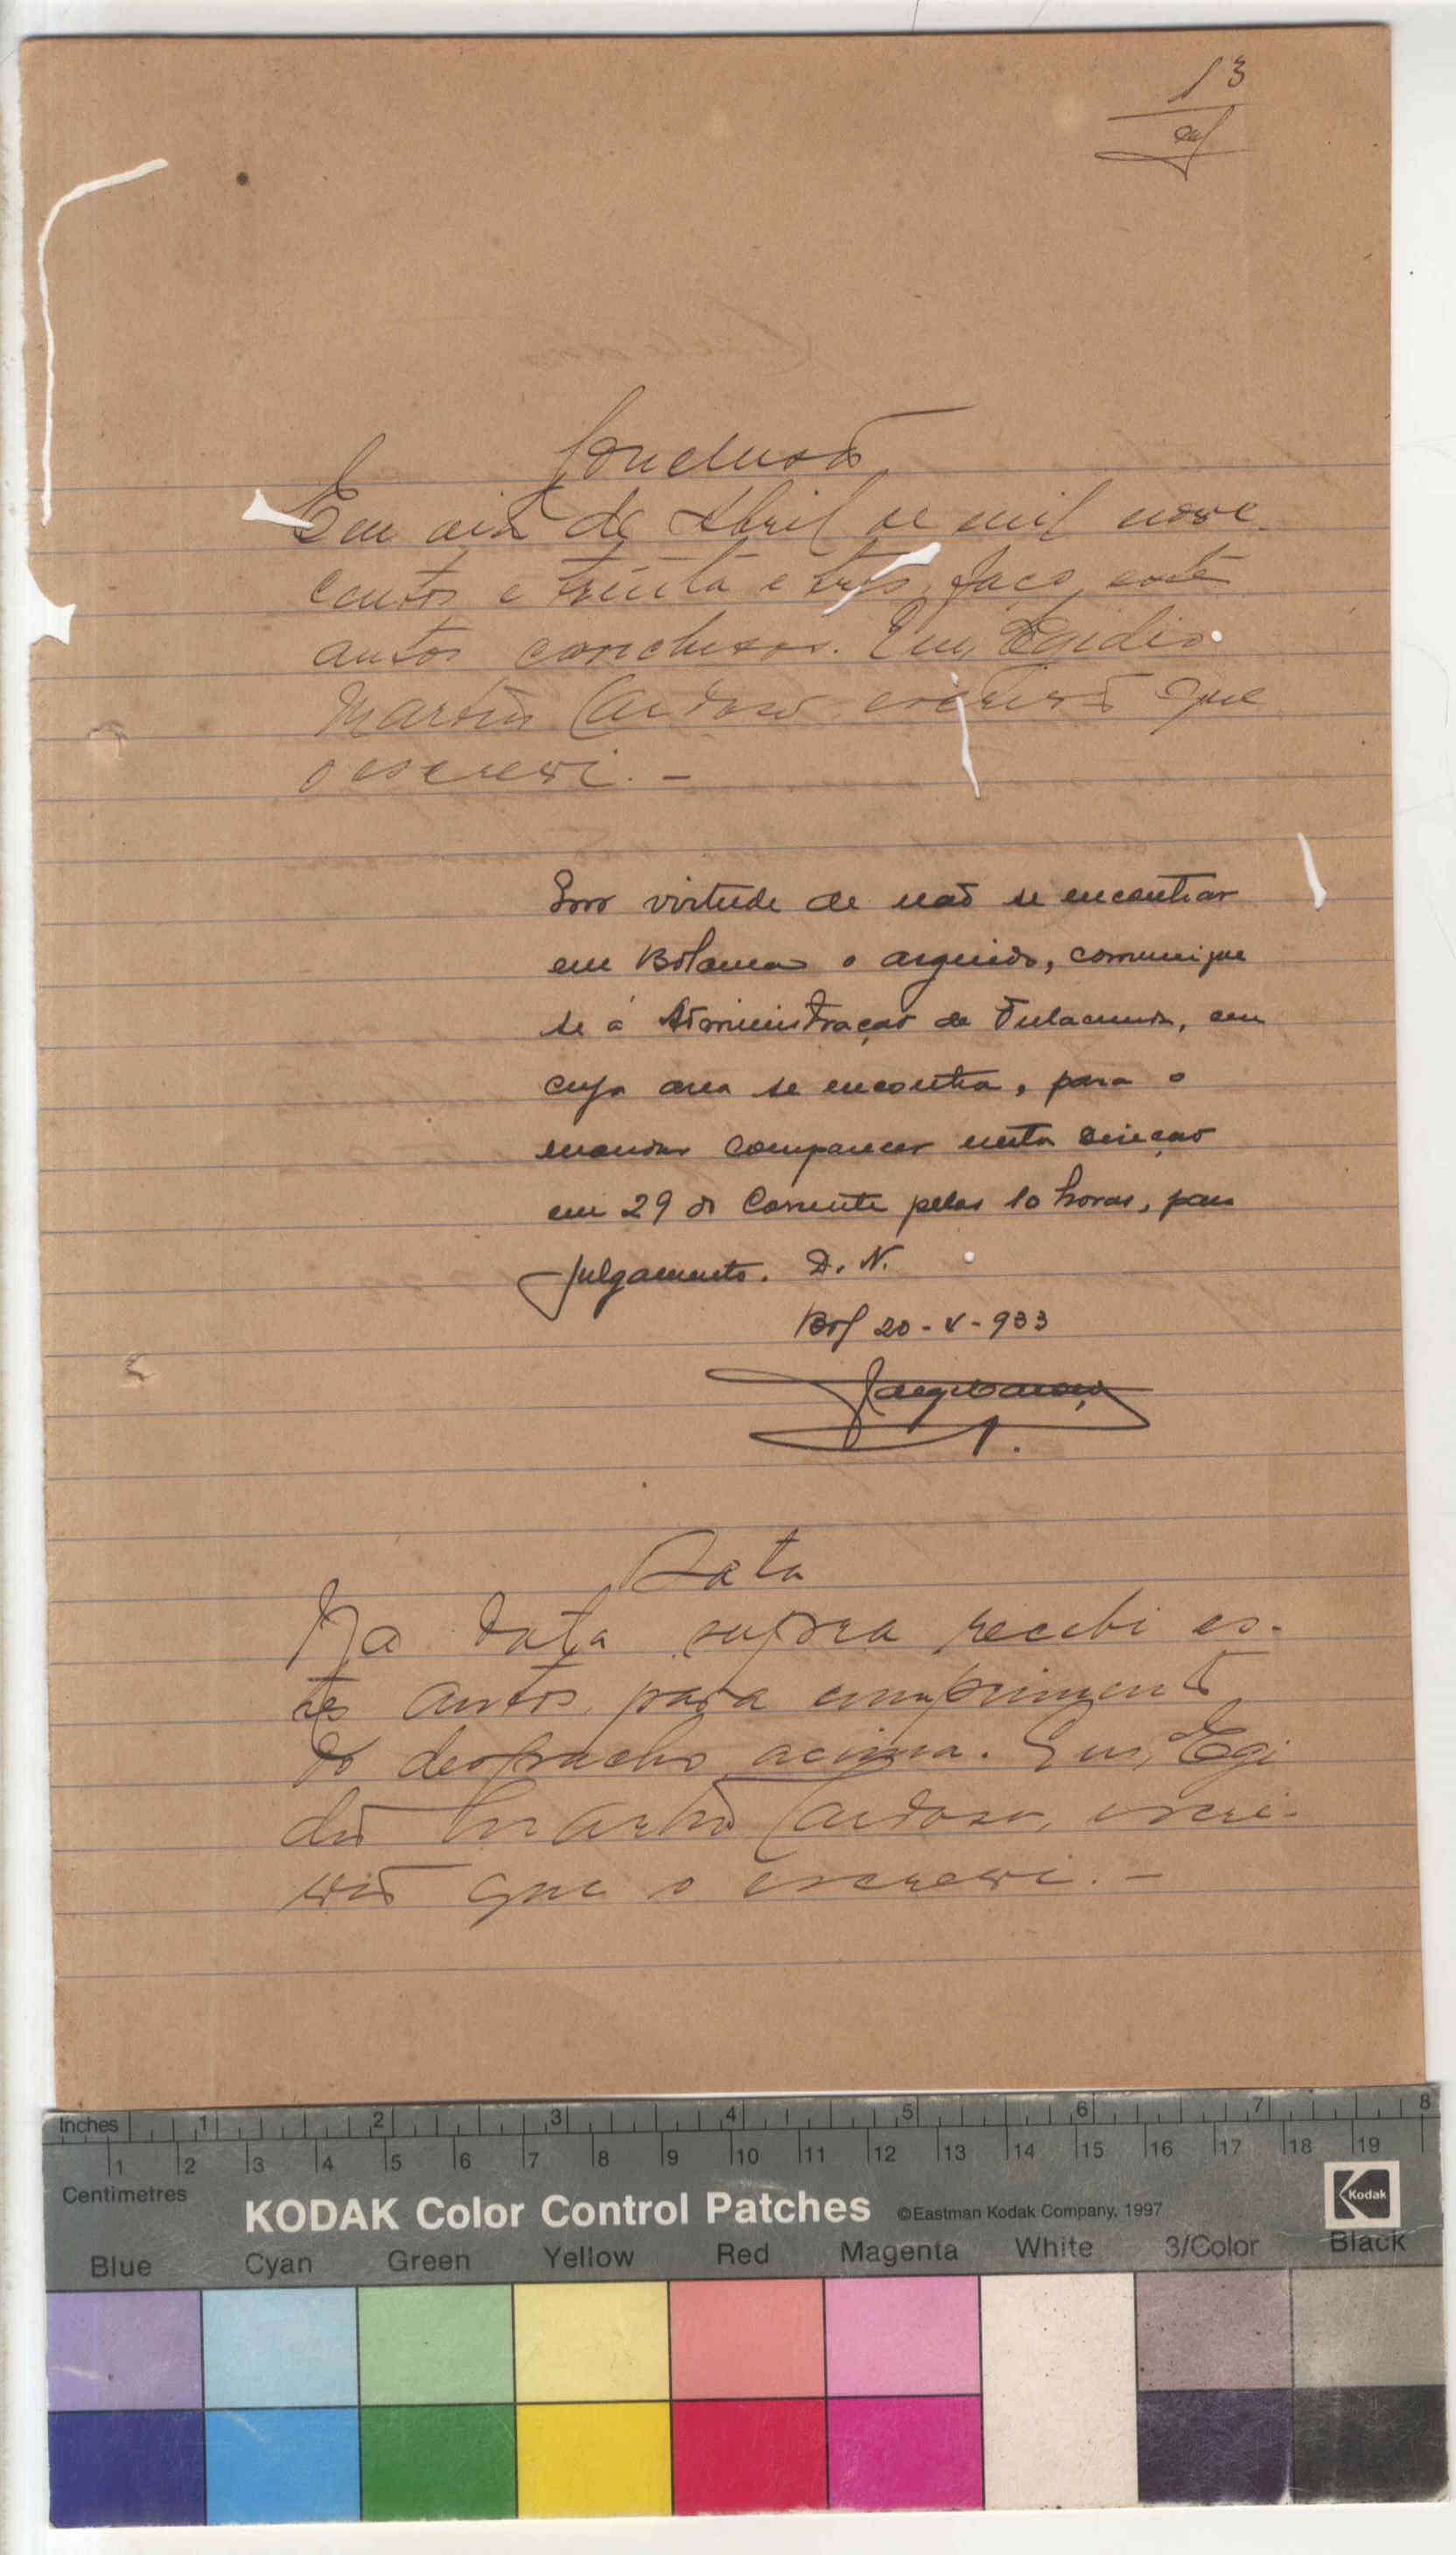 13
Conclusão
Em dia de Abril de mil nove
centos e trinta e tres, faço, este
autos conclusos. Eu, Egidio
Martins Cardoso escrivão que
o escrevi. -
virtude de não se encontrar
em Bolama o arguido, comunique
se á Administração de Fulacunda, em
cuja area se encontra, para o
mandar comparecer nesta Direcção
em 29 do Corrente pelas 10 horas, para
julgamento. D. N.
Bol 20-V-933
Data
Na data supra recebi es-
tes autos para cumprimento
do despacho acima. Eu, Egi
dio Martins Cardoso, escri-
vão que o escrevi. -
Inches 1 2 3 4 5 6 7 8
1 2 3 4 5 6 7 8 9 10 11 12 13 14 15 16 17 18 19
Centimetres
KODAK Color Control Patches ©Eastman Kodak Company, 1997 Kodak
Blue Cyan Green Yellow Red Magenta White 3/Color Black